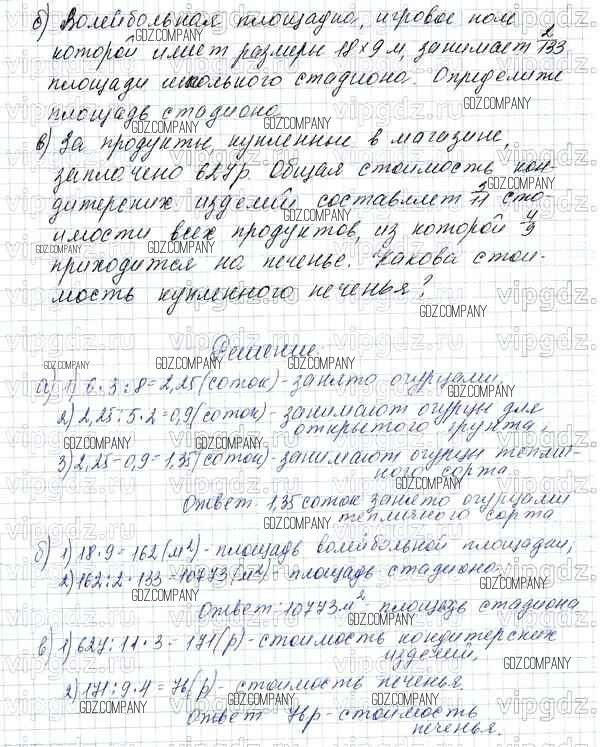 б) Волейбольная площадка, игровое поле
которой имеет размеры 18×9 м, занимает 2/133
площади школьного стадиона. Определите
площадь стадиона
в) За продукты, купленные в магазине,
заплачено 627р. Общая стоимость кон-
дитерских изделий составляет 3/11 сто-
имости всех продуктов, из которой 4/9
приходится на печенье. Какова стои-
мость купленного печенья?
Решение:
а) 1) 6·3:8=2,25(соток)-занято огурцами,
2) 2,25:5·2=0,9(соток)-занимают огурцы для
открытого грунта,
3) 2,25-0,9=1,35(соток)-занимают огурцы теплич-
ного сорта.
Ответ 1,35 соток занято огурцами
тепличного сорта
б) 1) 18·9=162(м²)-площадь волейбольной площадки;
2) 162:2·133=10773(м²)-площадь стадиона.
Ответ: 10773м² площадь стадиона
в) 1) 627:11·3=171(р)-стоимость кондитерских
изделий,
2) 171:9·4=76(р)-стоимость печенья.
Ответ 76р-стоимость
печенья.
GDZ.COMPANY
vipgdz.ru